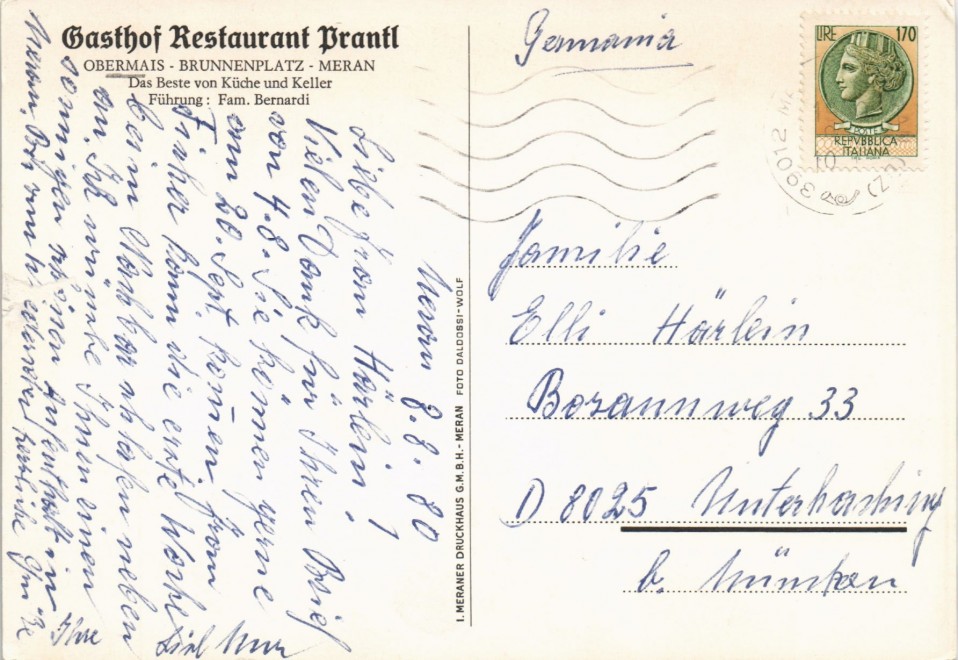 Gasthof Restaurant Prantl
OBERMAIS - BRUNNENPLATZ - MERAN
Das Beste von Küche und Keller
Führung: Fam. Bernardi
Germania
LIRE 170
POSTE
REPVBBLICA
ITALIANA
39012
Meran 8.8.80
Liebe Frau Härlein!
Vielen Dank für Ihren Brief
von 4.8. Sie komen gerne
am 20. Sept komen. Frau
Fischer kann die erste Woche
beim Nachbar schlafen neben
an. Ich wünsche Ihnen einen
sonnigen schönen Aufenthalt in
Meran. Bis zum herzliche Grüße
Ihre
Familie
Elli Härlein
Bozannweg 33
D 8025 Unterhaching
b. München
I. MERANER DRUCKHAUS G.M.B.H. - MERAN FOTO DALDOSSI-WOLF